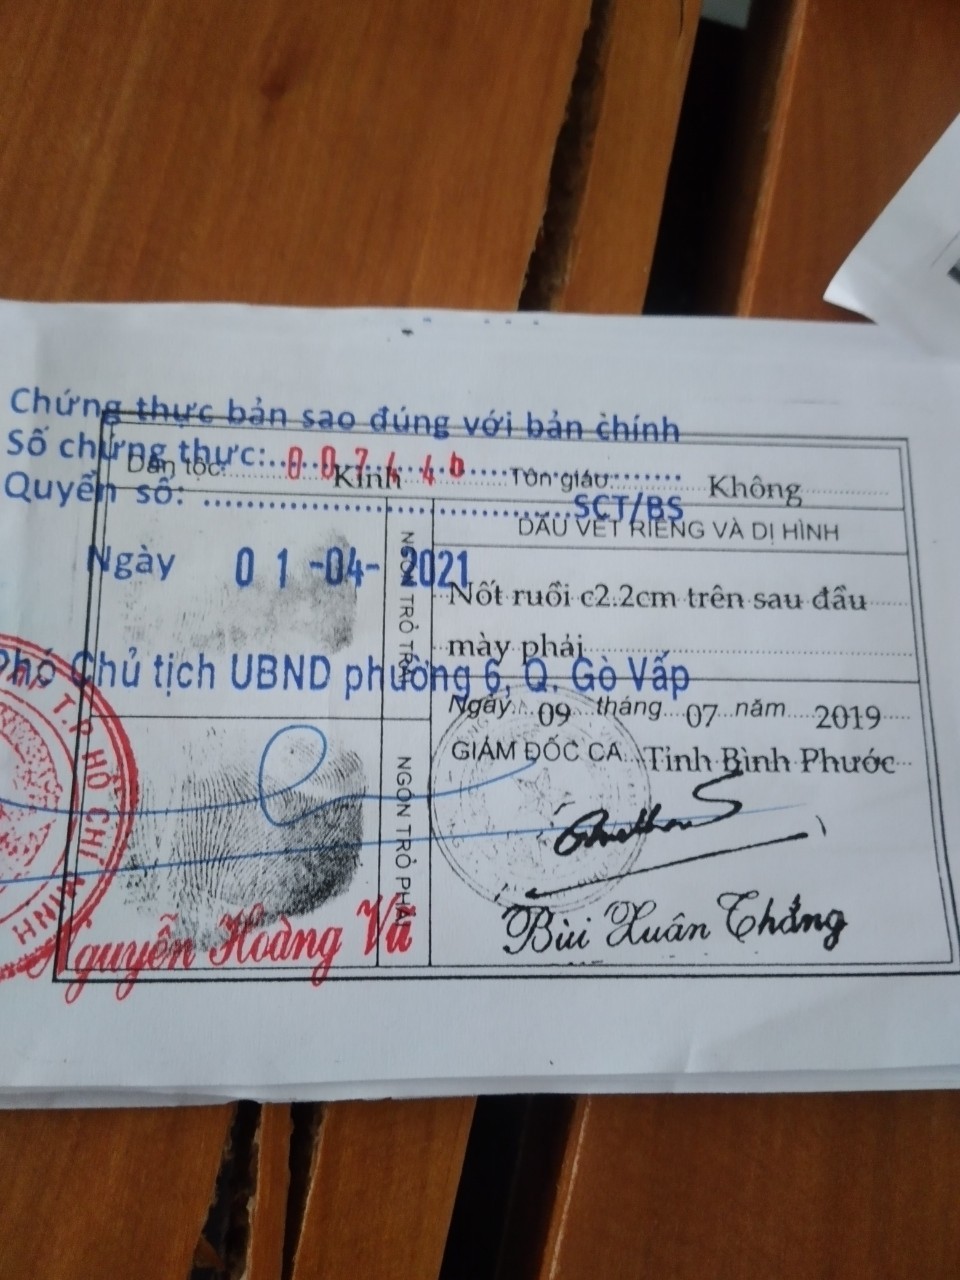 Chứng thực bản sao đúng với bản chính
Số chứng thực:
Dân tộc: Kinh Tôn giáo: Không
Quyển số: SCT/BS
DẤU VẾT RIÊNG VÀ DỊ HÌNH
Ngày 01-04-2021
NGÓN TRỎ TRÁI
Nốt ruồi c2.2cm trên sau đầu
mày phải
Phó Chủ tịch UBND phường 6, Q. Gò Vấp
Ngày 09 tháng 07 năm 2019
GIÁM ĐỐC CA Tỉnh Bình Phước
NGÓN TRỎ PHẢI
T.P HỒ CHÍ MINH
Nguyễn Hoàng Vũ
Bùi Xuân Thắng